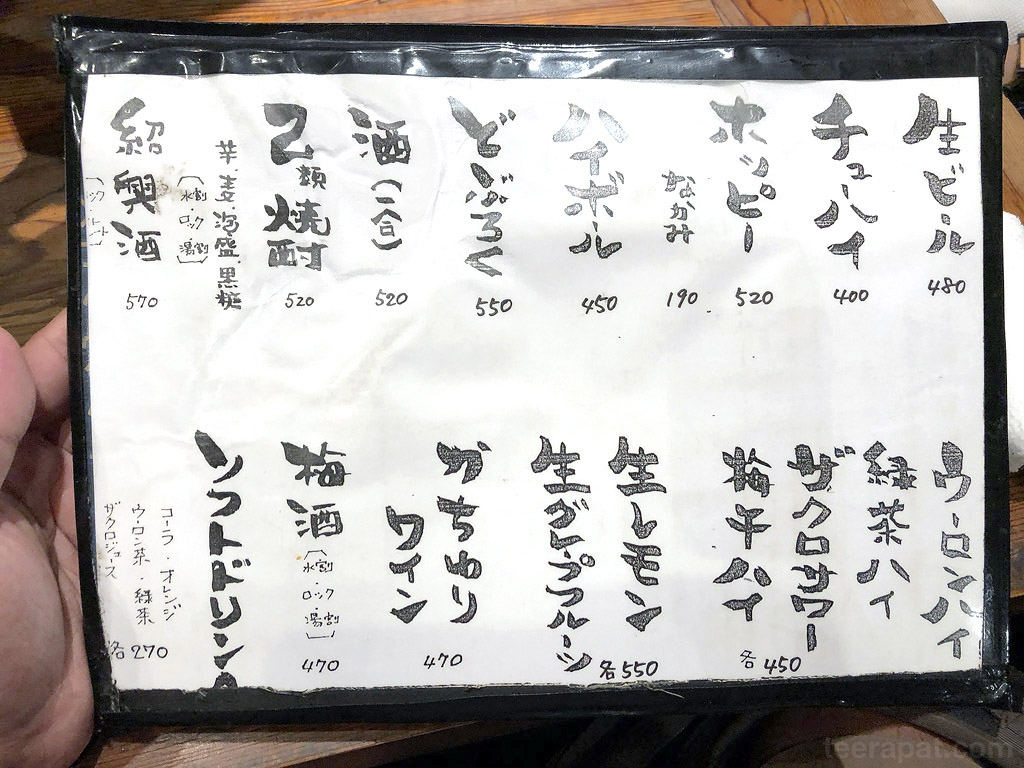 生ビール
480
チューハイ
400
ホッピー
520
なかみ
190
ハイボール
450
どぶろく
550
酒(一合)
520
乙類焼酎
520
芋・麦・泡盛・黒糖
(水割・ロック・湯割)
紹興酒
570
ウーロンハイ
緑茶ハイ
ザクロサワー
梅干ハイ
各450
生レモン
生グレープフルーツ
各550
かちわり
ワイン
470
梅酒
(水割・ロック・湯割)
470
ソフトドリンク
コーラ・オレンジ
ウーロン茶・緑茶
ザクロジュース
各270
teerapat.com